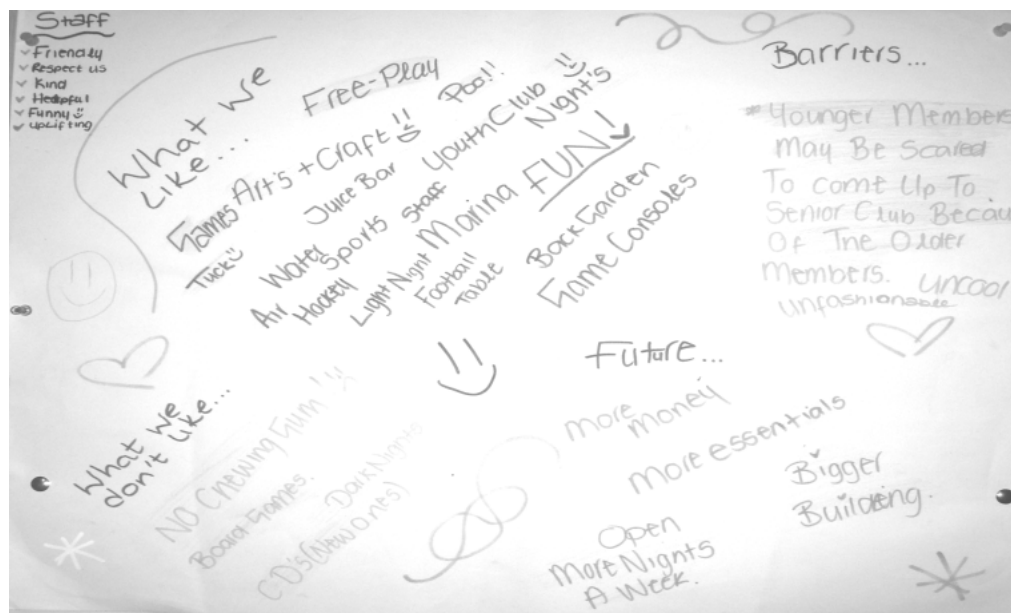 Staff
Friendly
Respect us
Kind
Helpful
Funny
uplifting
What we
Like...
Free-Play
Poo!!
Games Art's + Craft!!
Juice Bar
Youth Club
Night's
Tuck
Water
Sports
Staff
Marina
FUN!
Air
Hockey
Light Night
Football
Table
Back Garden
Game Consoles
Barriers...
* Younger Members
May Be Scared
To come Up To
Senior Club Becau
Of The Older
Members. Uncool
Unfashionable
What we
don't Like...
No Chewing Gum!
Board Games.
Dark Nights
C.D's (New ones)
Future...
More
Money
More essentials
Bigger
Building.
Open
More Nights
A Week.